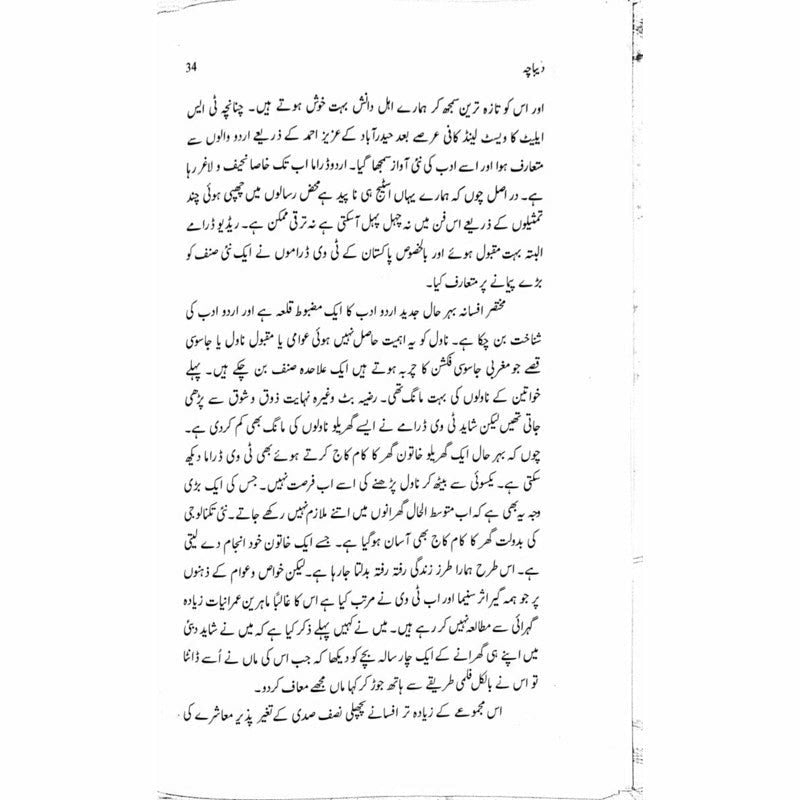 دیباچہ 34
اور اس کو تازہ ترین سمجھ کر ہمارے اہل دانش بہت خوش ہوتے ہیں۔ چنانچہ ٹی ایس
ایلیٹ کا ویسٹ لینڈ کافی عرصے بعد حیدرآباد کے عزیز احمد کے ذریعے اردو والوں سے
متعارف ہوا اور اسے ادب کی نئی آواز سمجھا گیا۔ اردو ڈراما اب تک خاصا نحیف و لاغر رہا
ہے۔ دراصل چوں کہ ہمارے یہاں اسٹیج ہی نا پید ہے محض رسالوں میں چھپی ہوئی چند
تمثیلوں کے ذریعے اس فن میں نہ چہل پہل آسکتی ہے نہ ترقی ممکن ہے۔ ریڈیو ڈرامے
البتہ بہت مقبول ہوئے اور بالخصوص پاکستان کے ٹی وی ڈراموں نے ایک نئی صنف کو
بڑے پیمانے پر متعارف کیا۔
مختصر افسانہ بہر حال جدید اردو ادب کا ایک مضبوط قلعہ ہے اور اردو ادب کی
شناخت بن چکا ہے۔ ناول کو یہ اہمیت حاصل نہیں ہوئی عوامی یا مقبول ناول یا جاسوسی
قصے جو مغربی جاسوسی فکشن کا چربہ ہوتے ہیں ایک علاحدہ صنف بن چکے ہیں۔ پہلے
خواتین کے ناولوں کی بہت مانگ تھی۔ رضیہ بٹ وغیرہ نہایت ذوق و شوق سے پڑھی
جاتی تھیں لیکن شاید ٹی وی ڈرامے نے ایسے گھریلو ناولوں کی مانگ بھی کم کردی ہے۔
چوں کہ بہر حال ایک گھریلو خاتون گھر کا کام کاج کرتے ہوئے بھی ٹی وی ڈراما دیکھ
سکتی ہے۔ یکسوئی سے بیٹھ کر ناول پڑھنے کی اسے اب فرصت نہیں۔ جس کی ایک بڑی
وجہ یہ بھی ہے کہ اب متوسط الحال گھرانوں میں اتنے ملازم نہیں رکھے جاتے۔ نئی تکنالوجی
کی بدولت گھر کا کام کاج بھی آسان ہوگیا ہے۔ جسے ایک خاتون خود انجام دے لیتی
ہے۔ اس طرح ہمارا طرز زندگی رفتہ رفتہ بدلتا جارہا ہے۔ لیکن خواص و عوام کے ذہنوں
پر جو ہمہ گیر اثر سنیما اور اب ٹی وی نے مرتب کیا ہے اس کا غالباً ماہرین عمرانیات زیادہ
گہرائی سے مطالعہ نہیں کر رہے ہیں۔ میں نے کہیں پہلے ذکر کیا ہے کہ میں نے شاید دبئی
میں اپنے ہی گھرانے کے ایک چار سالہ بچے کو دیکھا کہ جب اس کی ماں نے اُسے ڈانٹا
تو اس نے بالکل فلمی طریقے سے ہاتھ جوڑ کر کہا ماں مجھے معاف کردو۔
اس مجموعے کے زیادہ تر افسانے پچھلی نصف صدی کے تغیر پذیر معاشرے کی